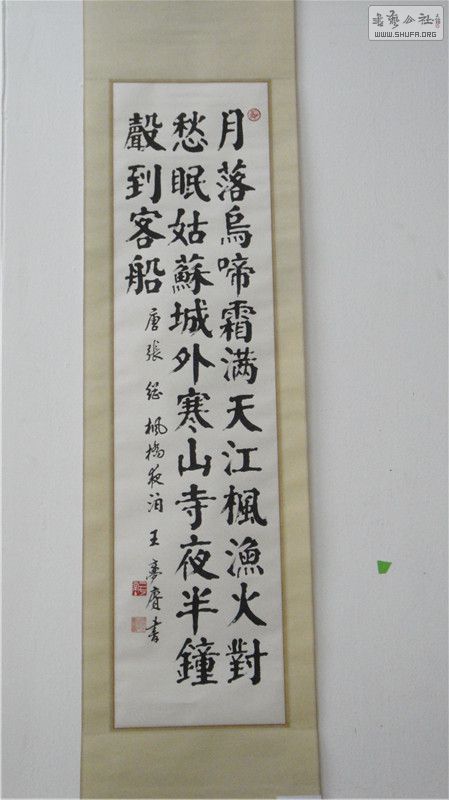 月落烏啼霜满天江楓漁火對
愁眠姑蘇城外寒山寺夜半鐘
聲到客船
唐張继楓橋夜泊王夢賡书
書藝公社
WWW.SHUFA.ORG